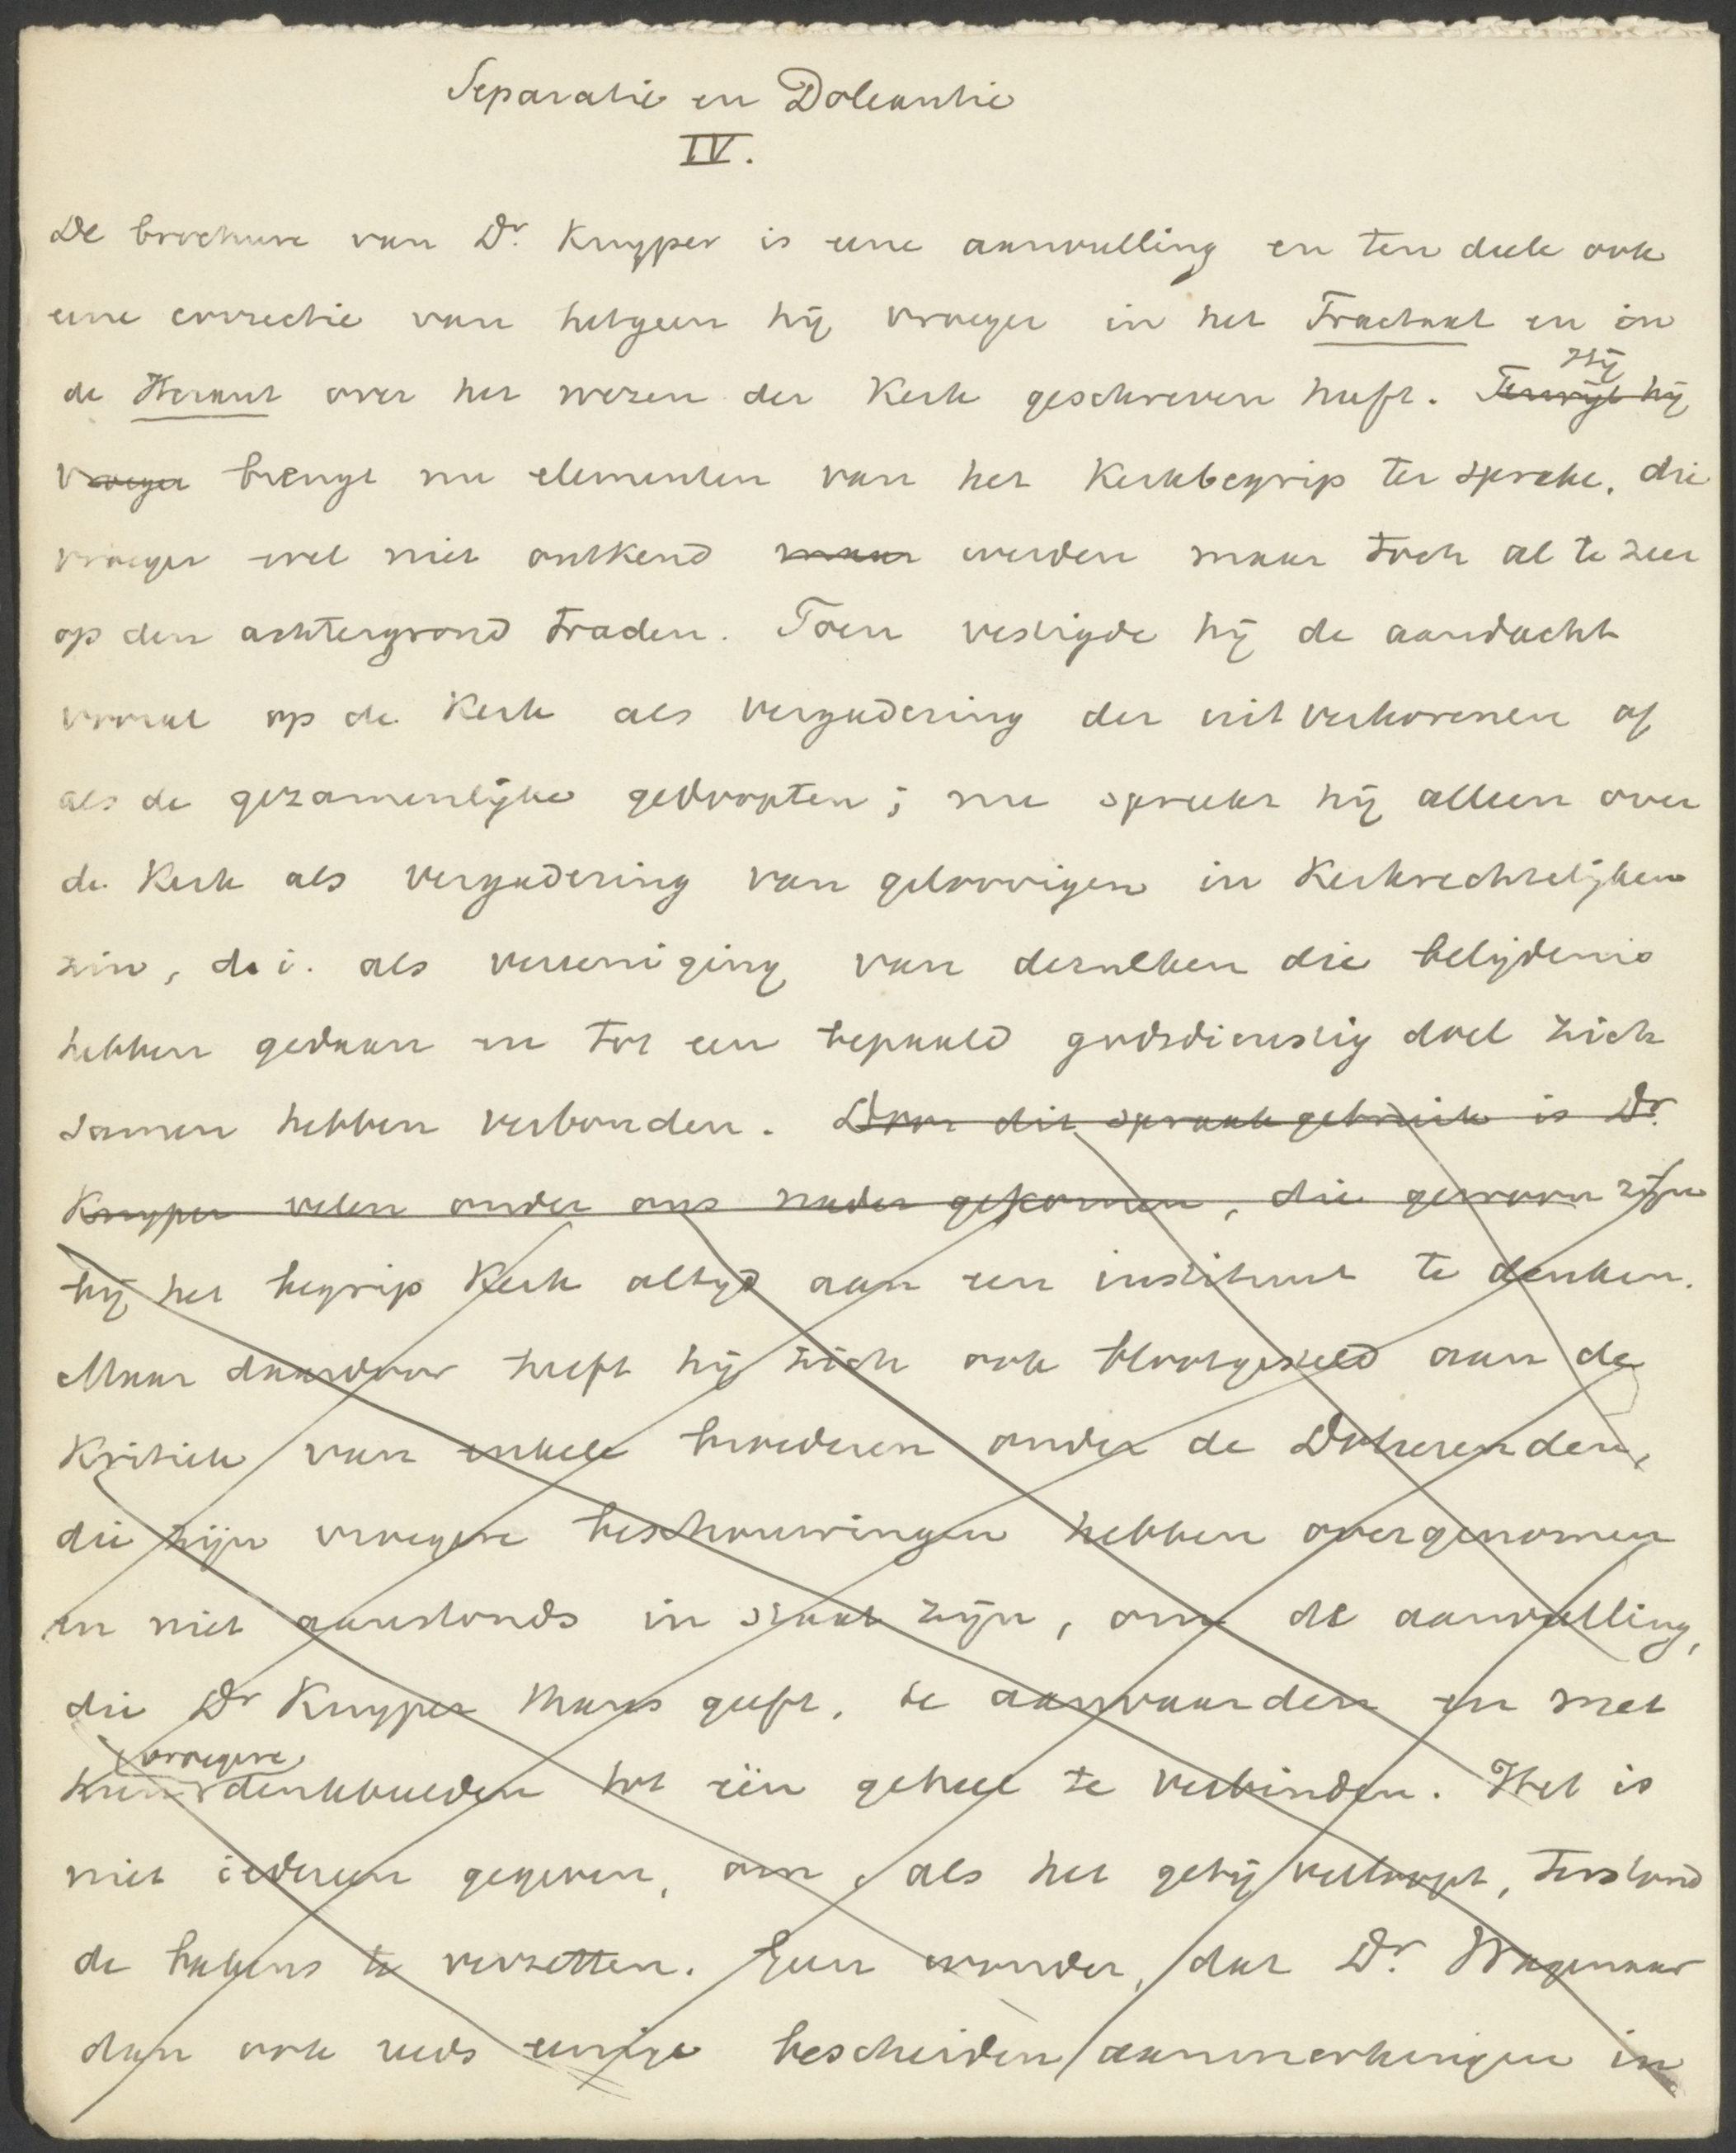 Separatie en Doleantie
IV.
De brochure van Dr. Kuyper is eene aanvulling en ten deele ook
eene correctie van hetgeen hij vroeger in het Tractaat en in
de Heraut over het wezen der Kerk geschreven heeft. Terwijl hij Hij
vroeger brengt nu elementen van het Kerkbegrip ter sprake, die
vroeger wel niet ontkend maar werden maar toch al te zeer
op den achtergrond traden. Toen vestigde hij de aandacht
vooral op de Kerk als vergadering der uitverkorenen of
als de gezamenlijke gedoopten; nu spreekt hij alleen over
de Kerk als vergadering van geloovigen in Kerkrechtelijken
zin, d. i. als vereeniging van dezulken die belijdenis
hebben gedaan en tot een bepaald godsdienstig doel zich
samen hebben verbonden. Door dit spraakgebruik is Dr.
Kuyper velen onder ons nader gekomen, die gewoon zijn
bij het begrip Kerk altijd aan een instituut te denken.
Maar daardoor heeft hij zich ook blootgesteld aan de
Kritiek van enkele broederen onder de Doleerenden,
die zijn vroegere beschouwingen hebben overgenomen
en niet aanstonds in staat zijn, om de aanvulling,
die Dr Kuyper thans geeft, te aanvaarden en met
hun vroegere denkbeelden tot één geheel te verbinden. Het is
niet iedereen gegeven, om, als het getij verloopt, terstond
de bakens te verzetten. Geen wonder, dat Dr. Wagenaar
dan ook reeds eenige bescheiden aanmerkingen in